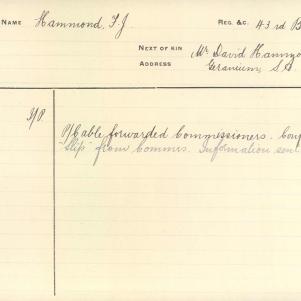 NAME Hammond, F.J. REG. &C. 43rd B
NEXT OF KIN Mr David Hammo
ADDRESS Geranium, S.A.
P/Cable forwarded Commissioners.
"Slip" from Commrs. Information sen